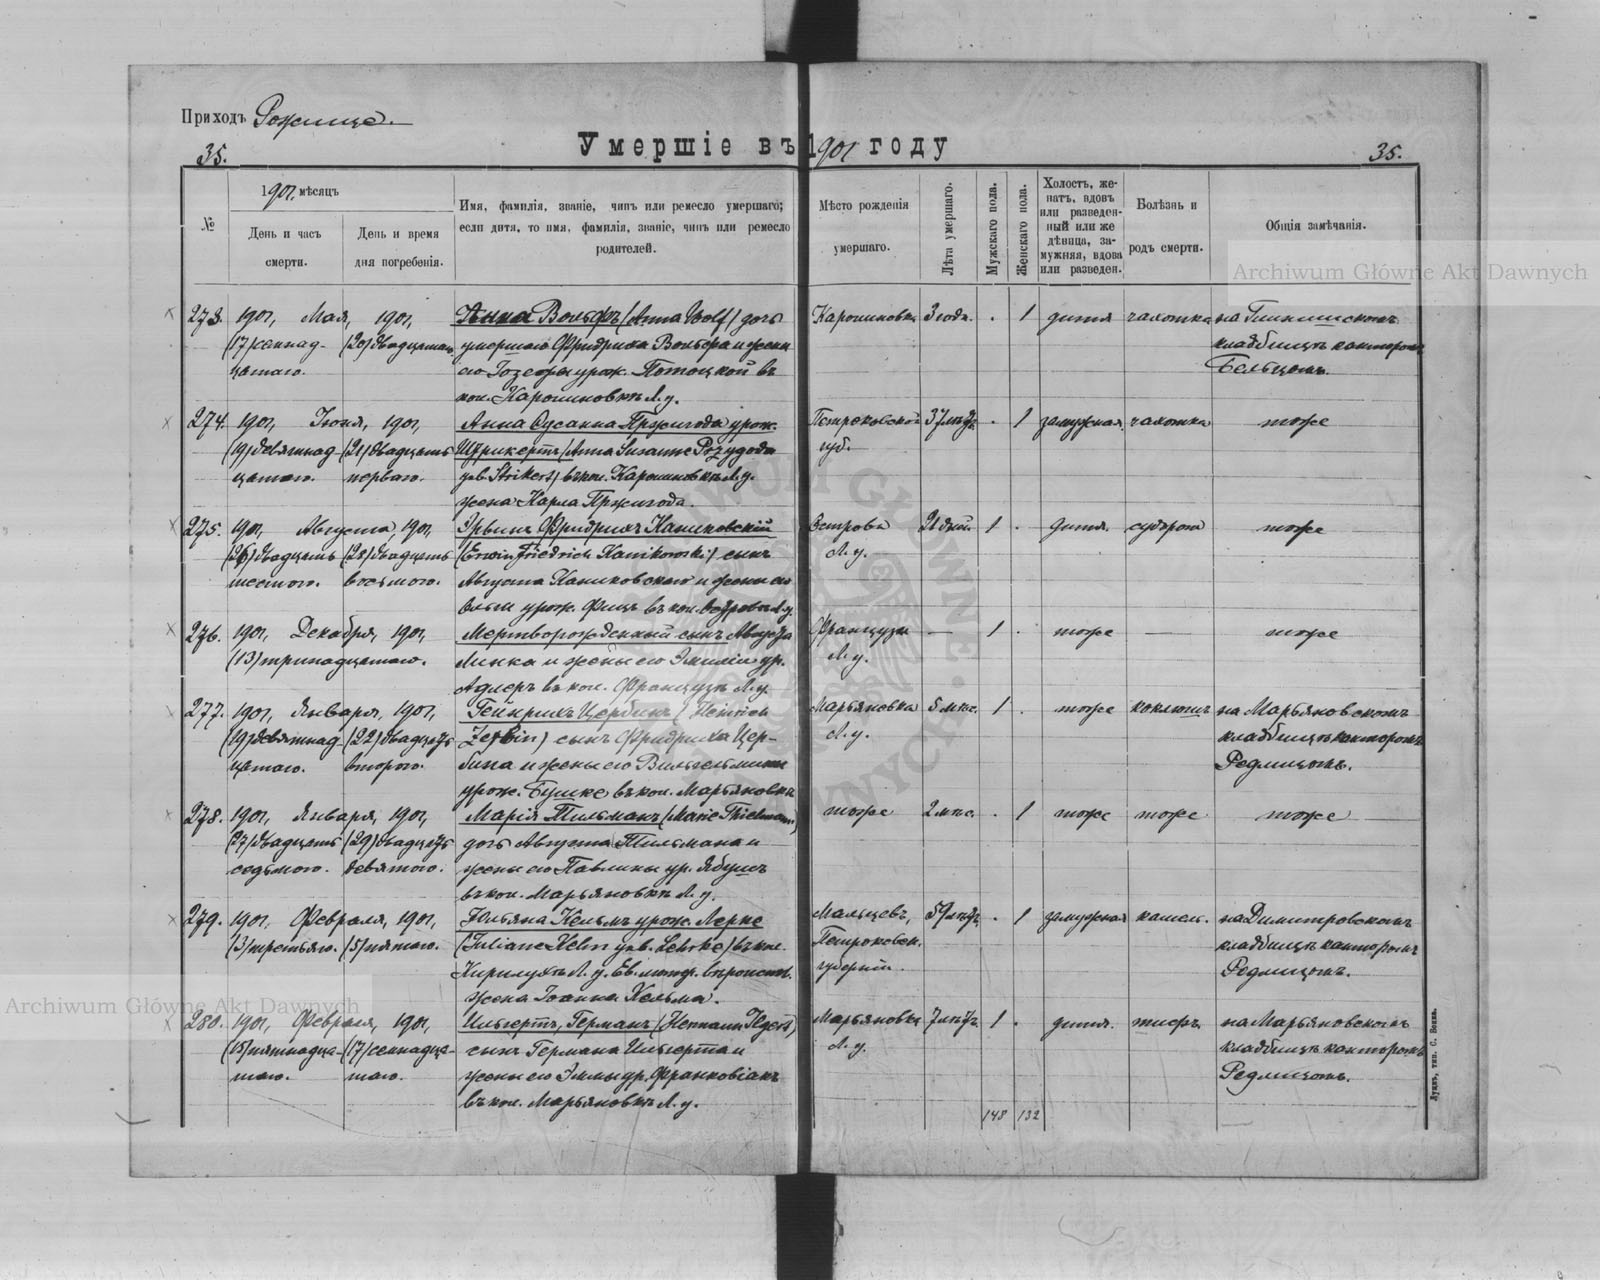 Приходъ Рожище.
Умершіе въ 1901 году
35.
35.
№
1901, мѣсяцъ
День и часъ
смерти.
День и время
дня погребенія.
Имя, фамилія, званіе, чинъ или ремесло умершаго;
если дитя, то имя, фамилія, званіе, чинъ или ремесло
родителей.
Мѣсто рожденія
умершаго.
Лѣта умершаго.
Мужскаго пола.
Женскаго пола.
Холостъ, же-
натъ, вдовъ
или разведен-
ный или же
дѣвица, за-
мужняя, вдова
или разведен.
Болѣзнь и
родъ смерти.
Общія замѣчанія.
Archiwum Główne Akt Dawnych
273. 1901, Мая, 1901, Анна Вольфъ (Anna Wolf) дочь Каролиновка 3 года. . 1 дитя чахотка на
(17) семнад- (20) двадцатаго умершаго Фридриха Вольфа и жены кладбищѣ канторомъ
цатаго. его Іозефы урож. Потоцкой въ Бельцомъ.
кол. Каролиновкѣ Л. у.
274. 1901, Іюня, 1901, Анна Сусанна Пржигода урож. Петроковской 37 лѣтъ. . 1 замужняя. чахотка тоже
(19) девятнад- (21) двадцать Штрикертъ (Anna Susanne Przygoda губ.
цатаго. перваго. geb. Strikert) въ кол. Каролиновкѣ Л. у.
жена Карла Пржигода.
275. 1901, Августа, 1901, Эрвинъ Фридрихъ Каниковскій Острова 21 дней. 1 . дитя. судорога тоже
(26) двадцать (28) двадцать (Erwin Friedrich Kanikowski) сынъ Л. у.
шестого. восьмого. Августа Каниковскаго и жены его
Ольги урож. Фицъ въ кол. Островъ Л. у.
276. 1901, Декабря, 1901, Мертворожденный сынъ Августа Французы — 1 . тоже — тоже
(13) тринадцатаго. Линка и жены его Эмиліи ур. Л. у.
Адлеръ въ кол. Французы Л. у.
277. 1901, Января, 1901, Гейнрихъ Цербинъ (Heinrich Марьяновка 5 мѣс. 1 . тоже коклюшъ на Марьяновскомъ
(19) девятнад- (22) двадцать Zerbin) сынъ Фридриха Цер- Л. у. кладбищѣ канторомъ
цатаго. второго. бина и жены его Вильгельмины Редлицомъ.
урож. Бушке въ кол. Марьяновкѣ
278. 1901, Января, 1901, Марія Тильманъ (Marie Thielmann) тоже 2 мѣс. . 1 тоже тоже тоже
(27) двадцать (29) двадцать дочь Августа Тильмана и
седьмого. девятаго. жены его Павлины ур. Ябушъ
въ кол. Марьяновкѣ Л. у.
279. 1901, Февраля, 1901, Юльяна Кельмъ урож. Лерке Мальцевъ, 59 лѣтъ. . 1 замужняя кашель. на Димитровскомъ
(3) третьяго. (5) пятаго. (Juliane Kelm geb. Lehrke) въ кол. Петроковск. кладбищѣ канторомъ
Кирилухѣ Л. у. Ев. лютер. вѣроиспов. губерніи. Редлицомъ.
жена Іоанна Кельма.
Archiwum Główne Akt Dawnych
280. 1901, Февраля, 1901, Ильгертъ, Германъ (Hermann Ilgert) Марьяновка 7 лѣтъ. 1 . дитя. тифъ. на Марьяновскомъ
(15) пятнадца- (17) семнадца- сынъ Германа Ильгерта и Л. у. кладбищѣ канторомъ
таго. таго. жены его Эммы ур. Франковіакъ Редлицомъ.
въ кол. Марьяновкѣ Л. у.
148 132
Луцкъ, тип. С. Бонка.